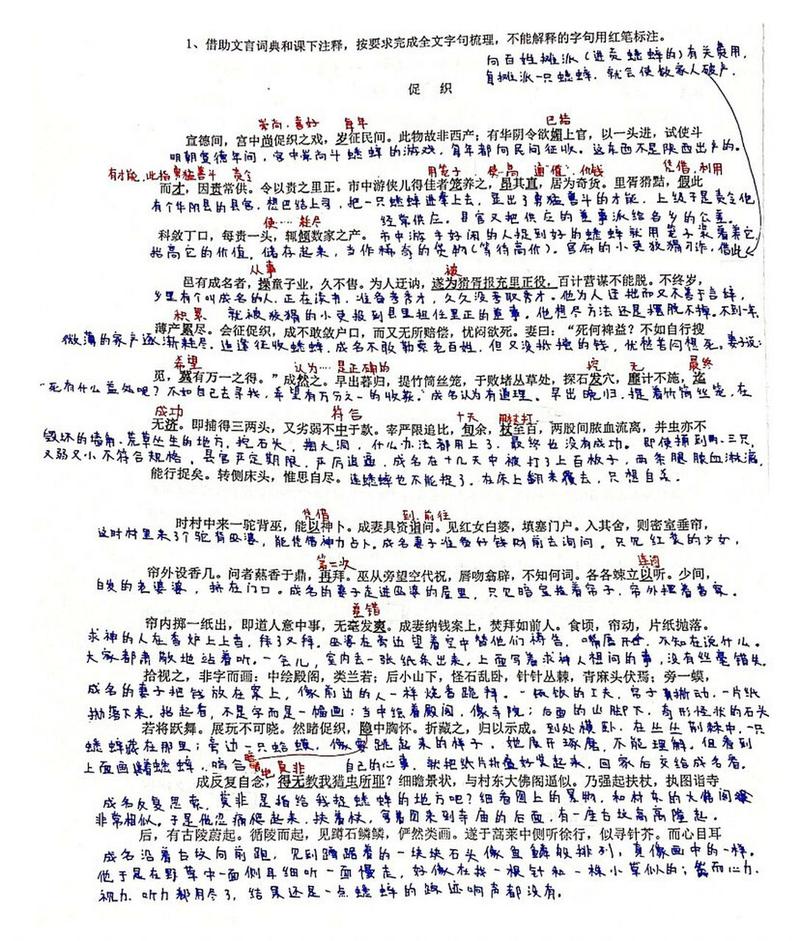 1、借助文言词典和课下注释，按要求完成全文字句梳理，不能解释的字句用红笔标注。
向百姓摊派(进贡蟋蟀的)有关费用,
每摊派一只蟋蟀,就会使数家人破产.
促 织
崇尚,喜好 每年 已给
宣德间，宫中尚促织之戏，岁征民间。此物故非西产；有华阴令欲媚上官，以一头进，试使斗
明朝宣德年间,宫中崇尚斗蟋蟀的游戏,每年都向民间征收。这东西不是陕西出产的。
有才能,此指勇猛善斗 用笼子 使…高 通"值",价钱 凭借,利用
而才，因责常供。令以责之里正。市中游侠儿得佳者笼养之，昂其直，居为奇货。里胥猾黠，假此
有个华阴县的县官,想巴结上司,把一只蟋蟀进奉上去,显出了勇猛善斗的才能,上级于是责令他
使…耗尽 经常供应。县官又把供应的差事派给各乡的公差。
科敛丁口，每责一头，辄倾数家之产。市中游手好闲的人捉到好的蟋蟀就用笼子装着养它
抬高它的价值,储存起来,当作稀奇的货物(等待高价)。官府的小吏狡猾刁诈,借此
从事 被
邑有成名者，操童子业，久不售。为人迂讷，遂为猾胥报充里正役，百计营谋不能脱。不终岁，
乡里有个叫成名的人,正在读书,准备考秀才,久久没考取秀才。他为人迂拙而又不善言辞,
积累 就被狡猾的小吏报到县里担任里正的差事。他想尽方法还是摆脱不掉。不到一年
薄产累尽。会征促织，成不敢敛户口，而又无所赔偿，忧闷欲死。妻曰：“死何裨益？不如自行搜
微薄的家产逐渐耗尽。适逢征收蟋蟀,成名不敢勒索老百姓,但又没抵偿的钱,忧愁苦闷想死。妻子说:
希望 认为…是正确的 挖 无 最终
觅，冀有万一之得。”成然之。早出暮归，提竹筒丝笼，于败堵丛草处，探石发穴，靡计不施，迄
"死有什么益处呢?不如自己去寻找,希望有万分之一的收获。"成名认为有道理。早出晚归,提着竹筒丝笼,在
成功 符合 十天 用杖打
无济。即捕得三两头，又劣弱不中于款。宰严限追比，旬余，杖至百，两股间脓血流离，并虫亦不
毁坏的墙角,荒草丛生的地方,挖石头,掏大洞,什么办法都用上了,最终也没有成功。即使捕到两、三只,
又弱又小不符合规格,县官严定期限,严厉追逼,成名在十几天中被打了上百板子,两条腿脓血淋漓,
能行捉矣。转侧床头，惟思自尽。连蟋蟀也不能捉了,在床上翻来覆去,只想自杀.
凭借 到,前往
时村中来一驼背巫，能以神卜。成妻具资诣问。见红女白婆，填塞门户。入其舍，则密室垂帘，
这时村里来了个驼背巫婆,能凭借神力占卜。成名妻子准备好钱财前去询问。只见红装的少女,
第二次 连词
帘外设香几。问者爇香于鼎，再拜。巫从旁望空代祝，唇吻翕辟，不知何词。各各竦立以听。少间，
白发的老婆婆,挤在门口。成名的妻子走进巫婆的屋里,只见暗室挂着帘子,帘外摆着香案.
差错
帘内掷一纸出，即道人意中事，无毫发爽。成妻纳钱案上，焚拜如前人。食顷，帘动，片纸抛落。
求神的人在香炉上上香,拜了又拜。巫婆在旁边望着空中替他们祷告,嘴唇开合,不知在说什么。
大家都肃敬地站着听。一会儿,室内丢一张纸条出来,上面写着求神人想问的事,没有丝毫错失。
拾视之，非字而画：中绘殿阁，类兰若；后小山下，怪石乱卧，针针丛棘，青麻头伏焉；旁一蟆，
成名的妻子把钱放在案上,像前边的人一样烧香跪拜。一顿饭的工夫,帘子掀动,一片纸
抛落下来。拾起看,不是字而是一幅画;当中绘着殿阁,像寺院;后面的山脚下,奇形怪状的石头
若将跃舞。展玩不可晓。然睹促织，隐中胸怀。折藏之，归以示成。到处横卧,在丛丛荆棘中,一只
蟋蟀藏在那里;旁边一只蛤蟆,像要跳起来的样子,她展开琢磨,不能理解。但看到
上面画着蟋蟀,暗合自己的心事,就把纸片折叠好装起来,回家后交给成名看。
莫非
成反复自念，得无教我猎虫所耶？细瞻景状，与村东大佛阁逼似。乃强起扶杖，执图诣寺
成名反复思索,莫非是指给我捉蟋蟀的地方吧?细看图上的景物,和村东的大佛阁
非常相似。于是他忍痛爬起来,扶着杖,拿着图来到寺庙的后面,有一座古坟高高隆起。
后，有古陵蔚起。循陵而起，见蹲石鳞鳞，俨然类画。遂于蒿莱中侧听徐行，似寻针芥。而心目耳
成名沿着古坟向前跑,见到蹲踞着的一块块石头像鱼鳞般排列,真像画中的一样。
他于是在野草中一面侧耳细听一面慢走,好像在找一根针和一株小草似的;然而心力.
视力.听力都用尽了,结果还是一点蟋蟀的踪迹响声都没有。